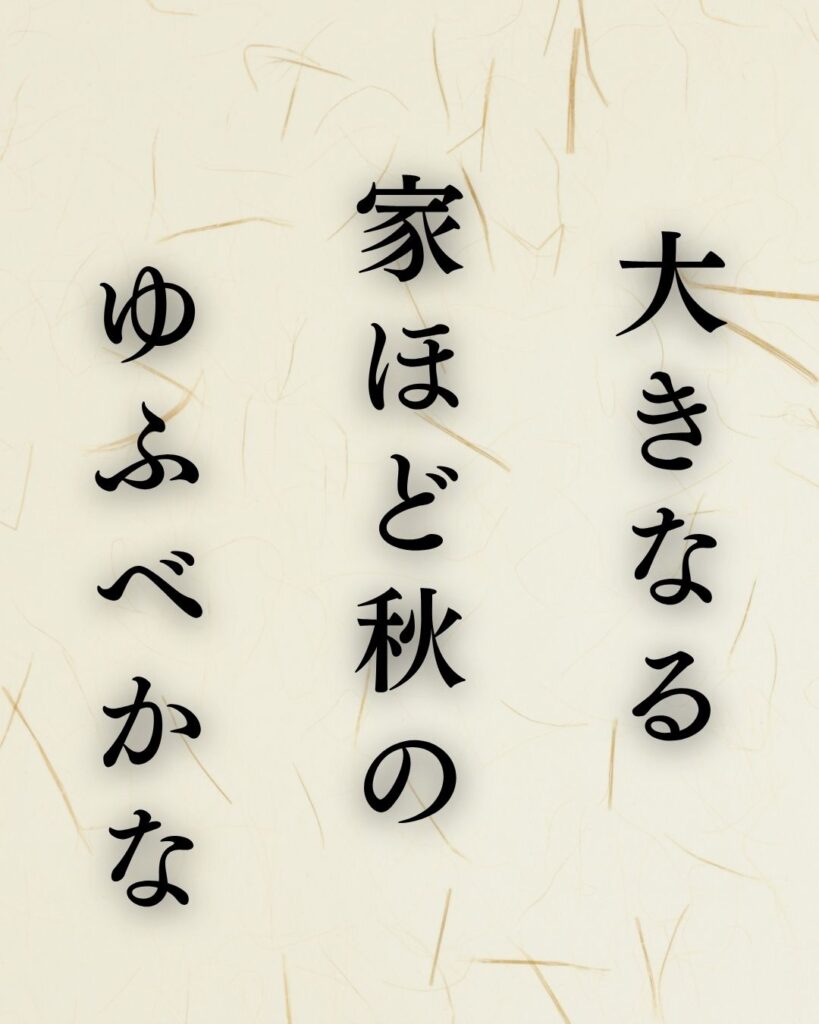 大きなる
家ほど秋の
ゆふべかな